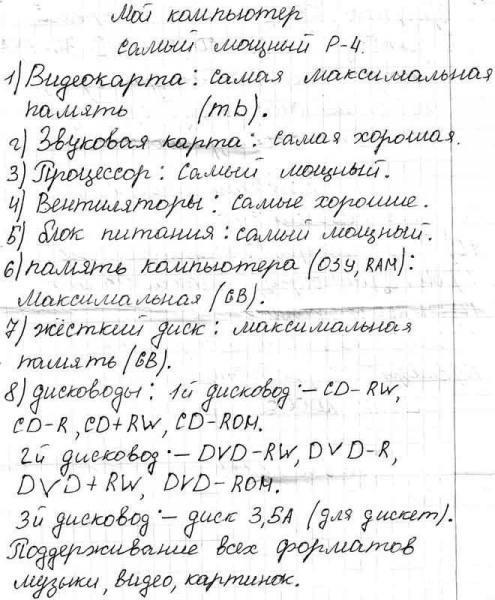 Мой компьютер
самый мощный P-4.
1) Видеокарта: самая максимальная
память (mb).
2) Звуковая карта: самая хорошая.
3) Процессор: самый мощный.
4) Вентиляторы: самые хорошие.
5) блок питания: самый мощный.
6) память компьютера (ОЗУ, RAM):
Максимальная (GB).
7) жёсткий диск: максимальная
память (GB).
8) дисководы: 1й дисковод:– CD-RW,
CD-R, CD+RW, CD-ROM.
2й дисковод:– DVD-RW, DVD-R,
DVD+RW, DVD-ROM.
3й дисковод:– диск 3,5А (для дискет).
Поддерживание всех форматов
музыки, видео, картинок.